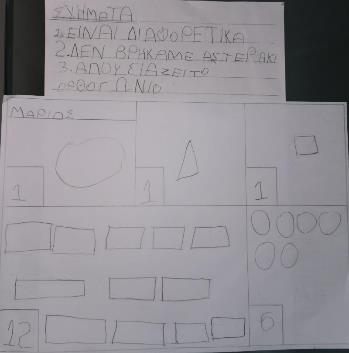 ΣΧΗΜΑΤΑ
1. ΕΙΝΑΙ ΔΙΑΦΟΡΕΤΙΚΑ
2. ΔΕΝ ΒΡΗΚΑΜΕ ΑΣΤΕΡΑΚΙ
3. ΑΠΟΥΣΙΑΖΕΙ ΤΟ
ΟΡΘΟΓΩΝΙΟ
ΜΑΡΙΟΣ
1
1
1
12
6